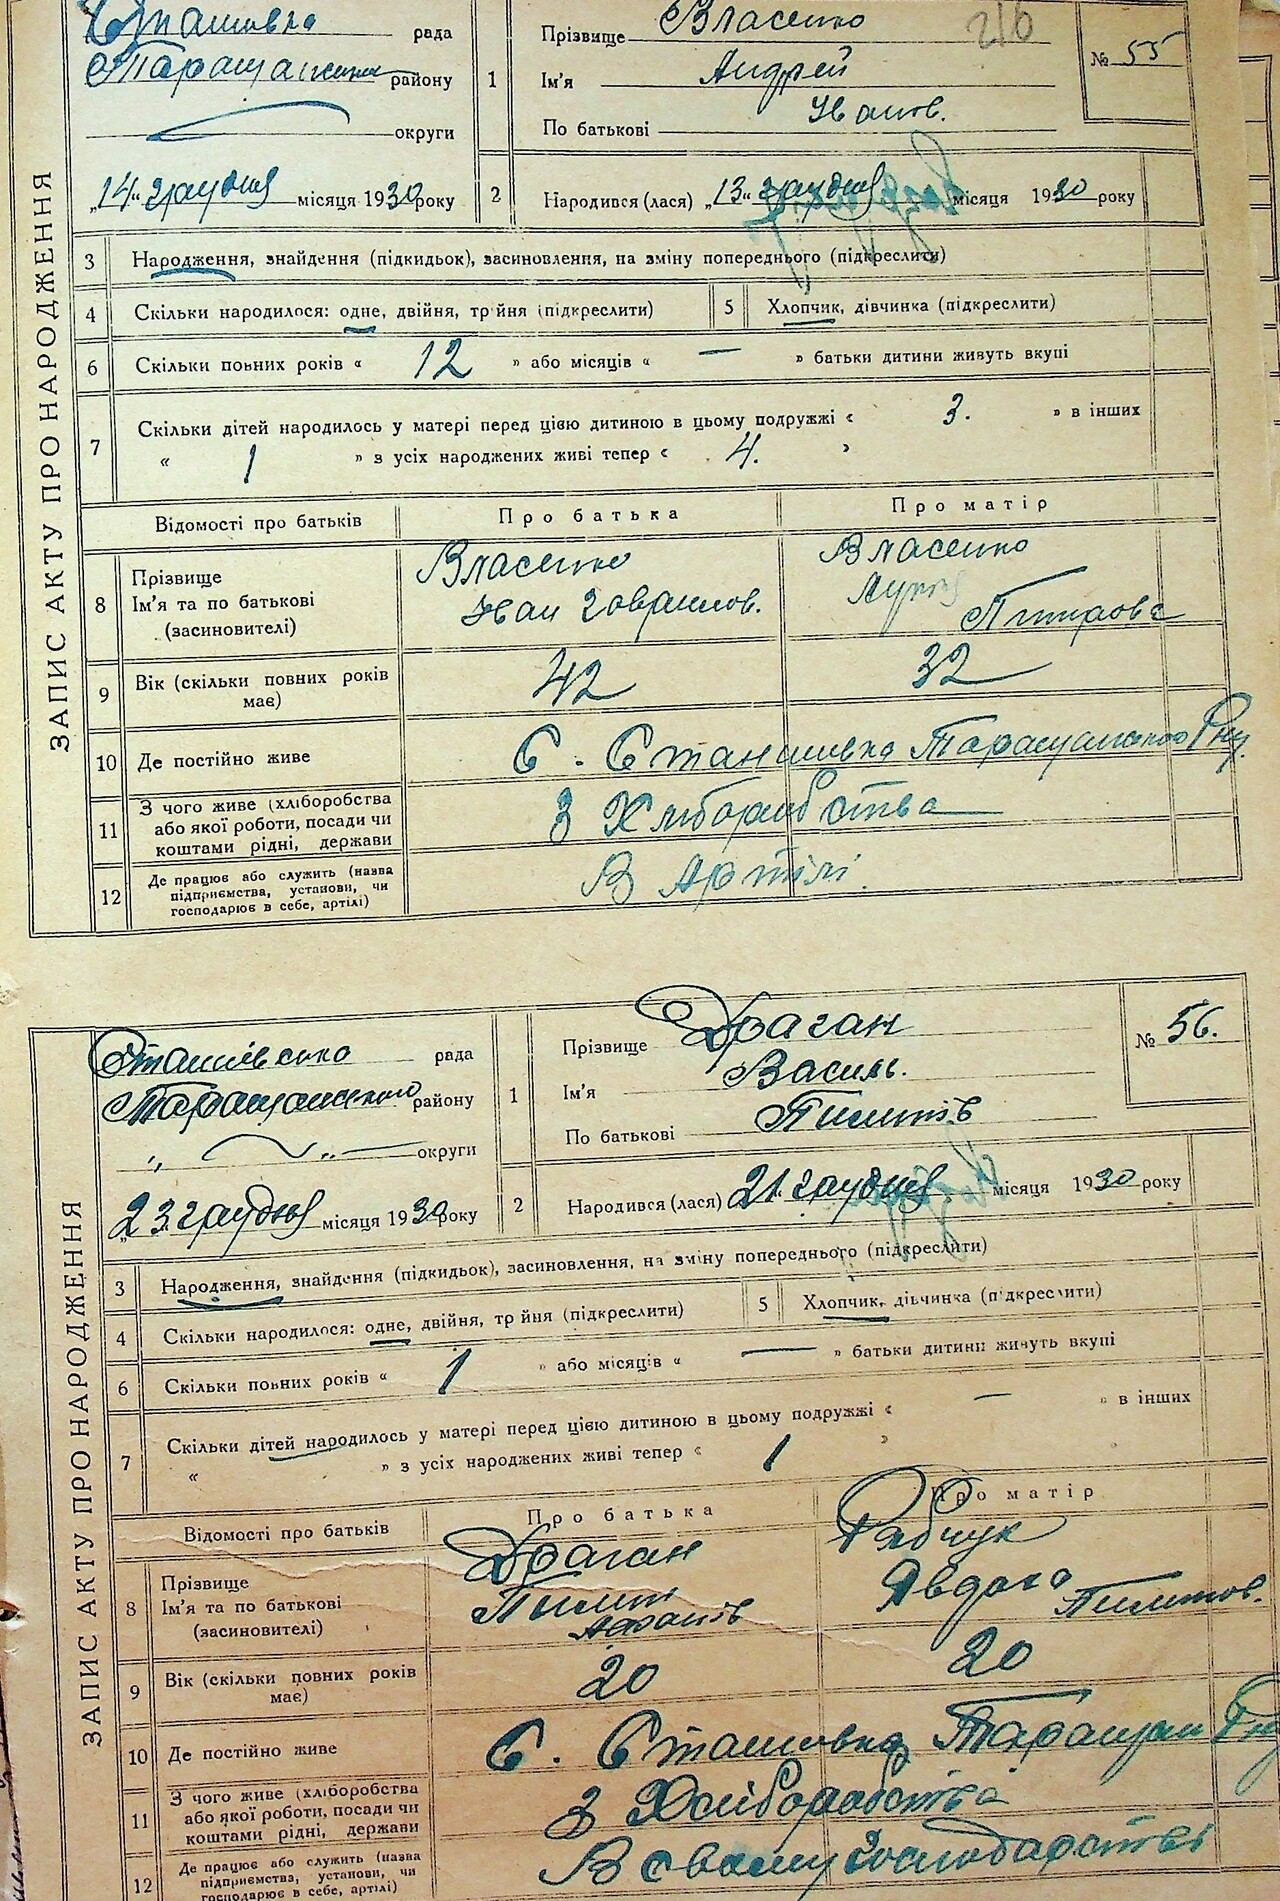 ЗАПИС АКТУ ПРО НАРОДЖЕННЯ
рада
Таращанськ району
округи
1 Прізвище Власенко
Ім'я Андрей
По батькові Іванов.
216
№ 55
„14" грудня місяця 1930 року
2 Народився (лася) „13" грудня місяця 1930 року
3 Народження, знайдення (підкидьок), засиновлення, на зміну попереднього (підкреслити)
4 Скільки народилося: одне, двійня, трійня (підкреслити)
5 Хлопчик, дівчинка (підкреслити)
6 Скільки повних років « 12 » або місяців « — » батьки дитини живуть вкупі
7 Скільки дітей народилось у матері перед цією дитиною в цьому подружжі « 3. » в інших
« 1 » з усіх народжених живі тепер « 4. »
Відомості про батьків Про батька Про матір
8 Прізвище Ім'я та по батькові (засиновителі)
Власенко
Іван
Власенко
9 Вік (скільки повних років має) 42 32
10 Де постійно живе С. Таращанського Р-ну.
11 З чого живе (хліборобства або якої роботи, посади чи коштами рідні, держави
З Хліборобства
12 Де працює або служить (назва підприємства, установи, чи господарює в себе, артілі)
В Артілі.
ЗАПИС АКТУ ПРО НАРОДЖЕННЯ
Сташівсько рада
Таращанського району
„ — „ — округи
1 Прізвище Драган
Ім'я Василь.
По батькові Пилипів
№ 56.
„23 грудня місяця 1930 року
2 Народився (лася) 21" грудня місяця 1930 року
3 Народження, знайдення (підкидьок), засиновлення, на зміну попереднього (підкреслити)
4 Скільки народилося: одне, двійня, трійня (підкреслити)
5 Хлопчик, дівчинка (підкреслити)
6 Скільки повних років « 1 » або місяців « — » батьки дитини живуть вкупі
7 Скільки дітей народилось у матері перед цією дитиною в цьому подружжі « — » в інших
« » з усіх народжених живі тепер « 1 »
Відомості про батьків Про батька Про матір
8 Прізвище Ім'я та по батькові (засиновителі)
Драган
Пилип
Рабчук
Явдоха
Пилипов.
9 Вік (скільки повних років має) 20 20
10 Де постійно живе С. Сташивка Таращан Р-ну
11 З чого живе (хліборобства або якої роботи, посади чи коштами рідні, держави
З Хліборобства
12 Де працює або служить (назва підприємства, установи, чи господарює в себе, артілі)
В своему господарстві